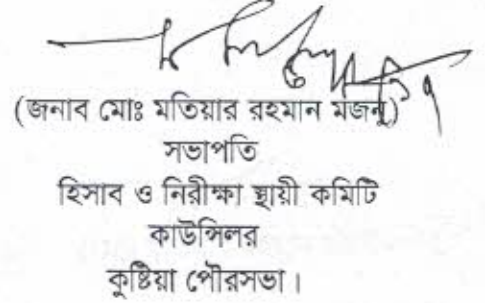 (জনাব মোঃ মতিয়ার রহমান মজনু)
সভাপতি
হিসাব ও নিরীক্ষা স্থায়ী কমিটি
কাউন্সিলর
কুষ্টিয়া পৌরসভা।